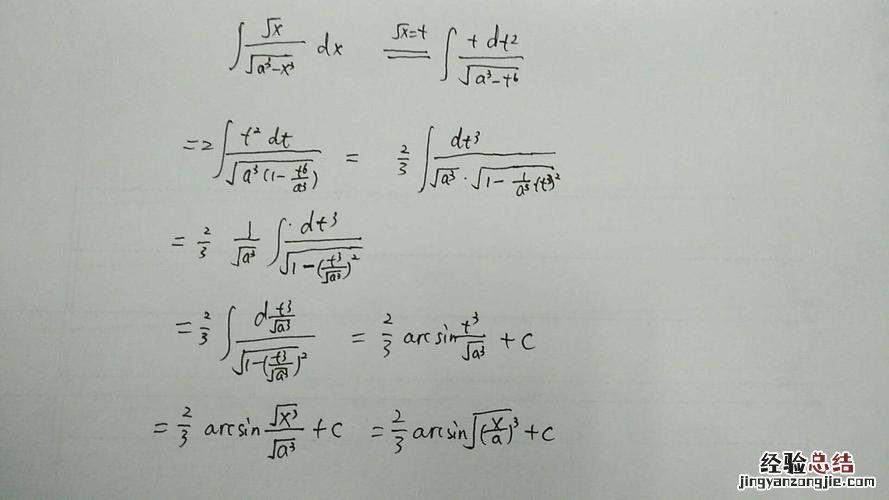 ∫ √x / √(a³-x³) dx  √x=t ══ ∫ t dt² / √(a³-t⁶)
= 2 ∫ t² dt / √(a³(1- t⁶/a³)) = 2/3 ∫ dt³ / (√a³ · √(1- 1/a³ (t³)²))
= 2/3 1/√a³ ∫ dt³ / √(1-(t³/√a³)²)
= 2/3 ∫ d t³/√a³ / √(1-(t³/√a³)²) = 2/3 arcsin t³/√a³ + C
= 2/3 arcsin √x³/√a³ + C = 2/3 arcsin √(x/a)³ + C
经验总结
jingyanzongjie.com